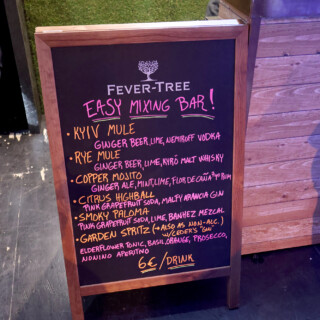 FEVER-TREE
EASY MIXING BAR!
• KYIV MULE
GINGER BEER, LIME, NEMIROFF VODKA
• RYE MULE
GINGER BEER, LIME, KYRÖ MALT WHISKY
• COPPER MOJITO
GINGER ALE, MINT, LIME, FLOR DE CAÑA RUM
• CITRUS HIGHBALL
PINK GRAPEFRUIT SODA, MALFY ARANCIA GIN
• SMOKY PALOMA
PINK GRAPEFRUIT SODA, LIME, BANHEZ MEZCAL
• GARDEN SPRITZ (→ALSO AS NON-ALC.)
W/CEDER'S "GIN"
ELDERFLOWER TONIC, BASIL, ORANGE, PROSECCO,
NONINO APERITIVO
6€/DRINK